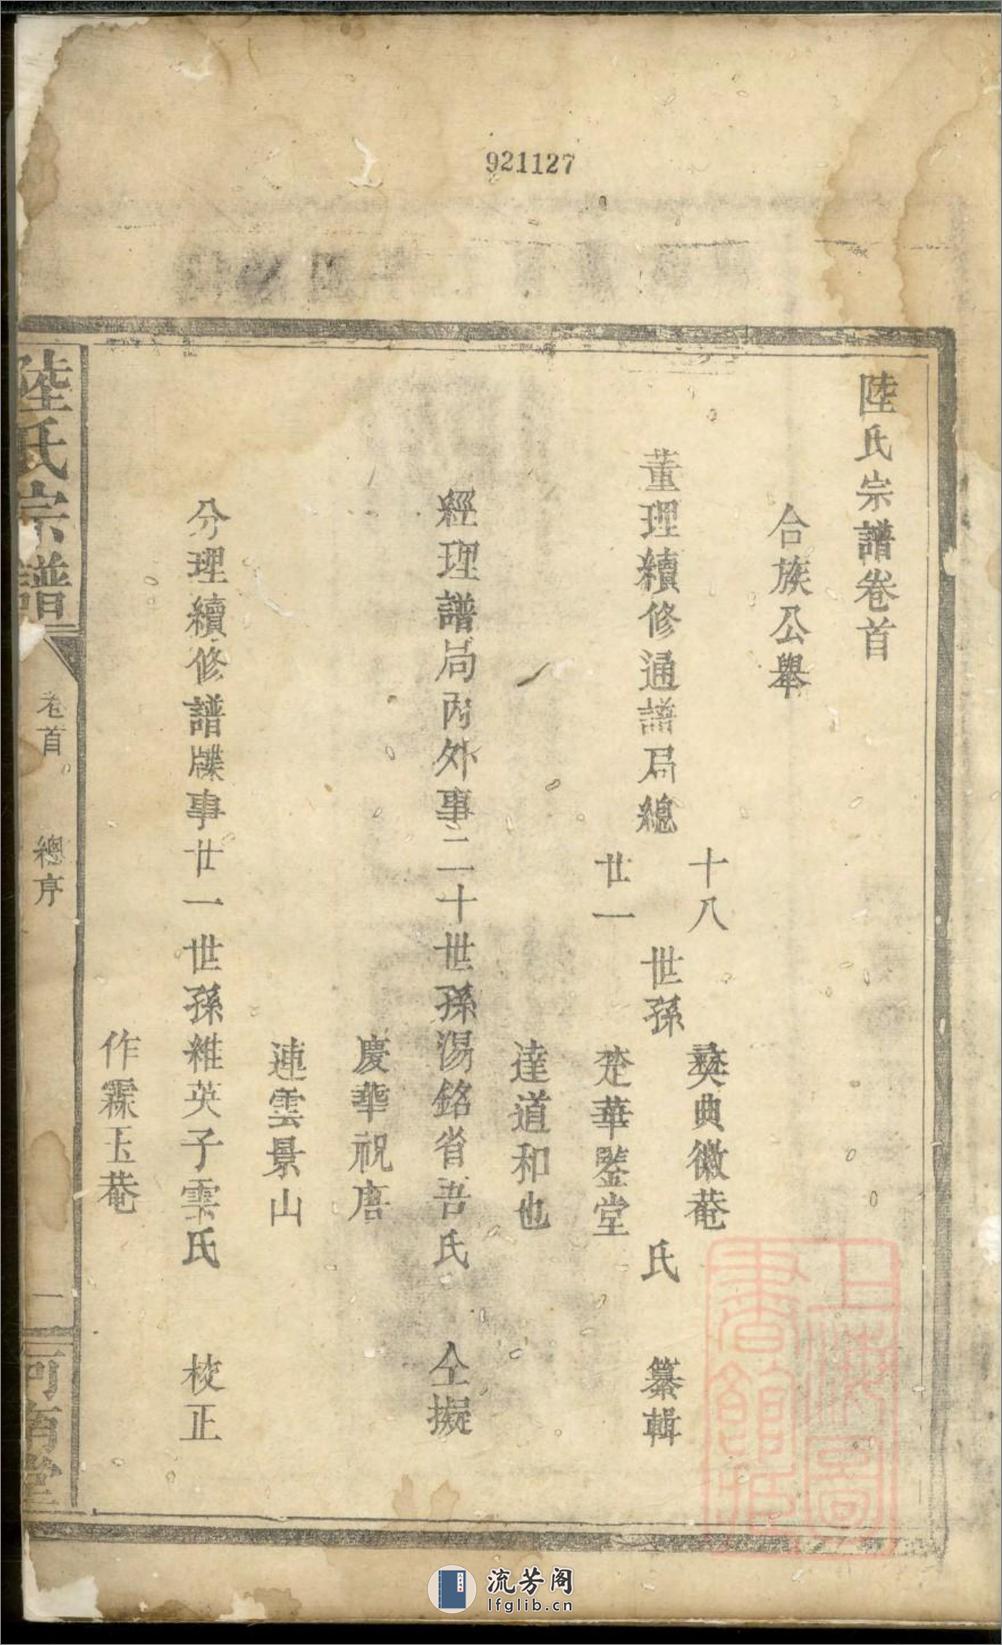 921127
陸氏宗譜卷首
合族公舉
董理續修通譜局總
十八
廿一
世孫
奕典徽菴
楚華鑒堂
氏
纂輯
達道和也
經理譜局內外事二十世孫湯銘省吾氏
仝擬
慶華祝唐
連雲景山
分理續修譜牒事廿一世孫維英子雲氏
校正
作霖玉菴
陸氏宗譜
卷首
總序
一
河南堂
上海圖書館藏
流芳阁
lfglib.cn